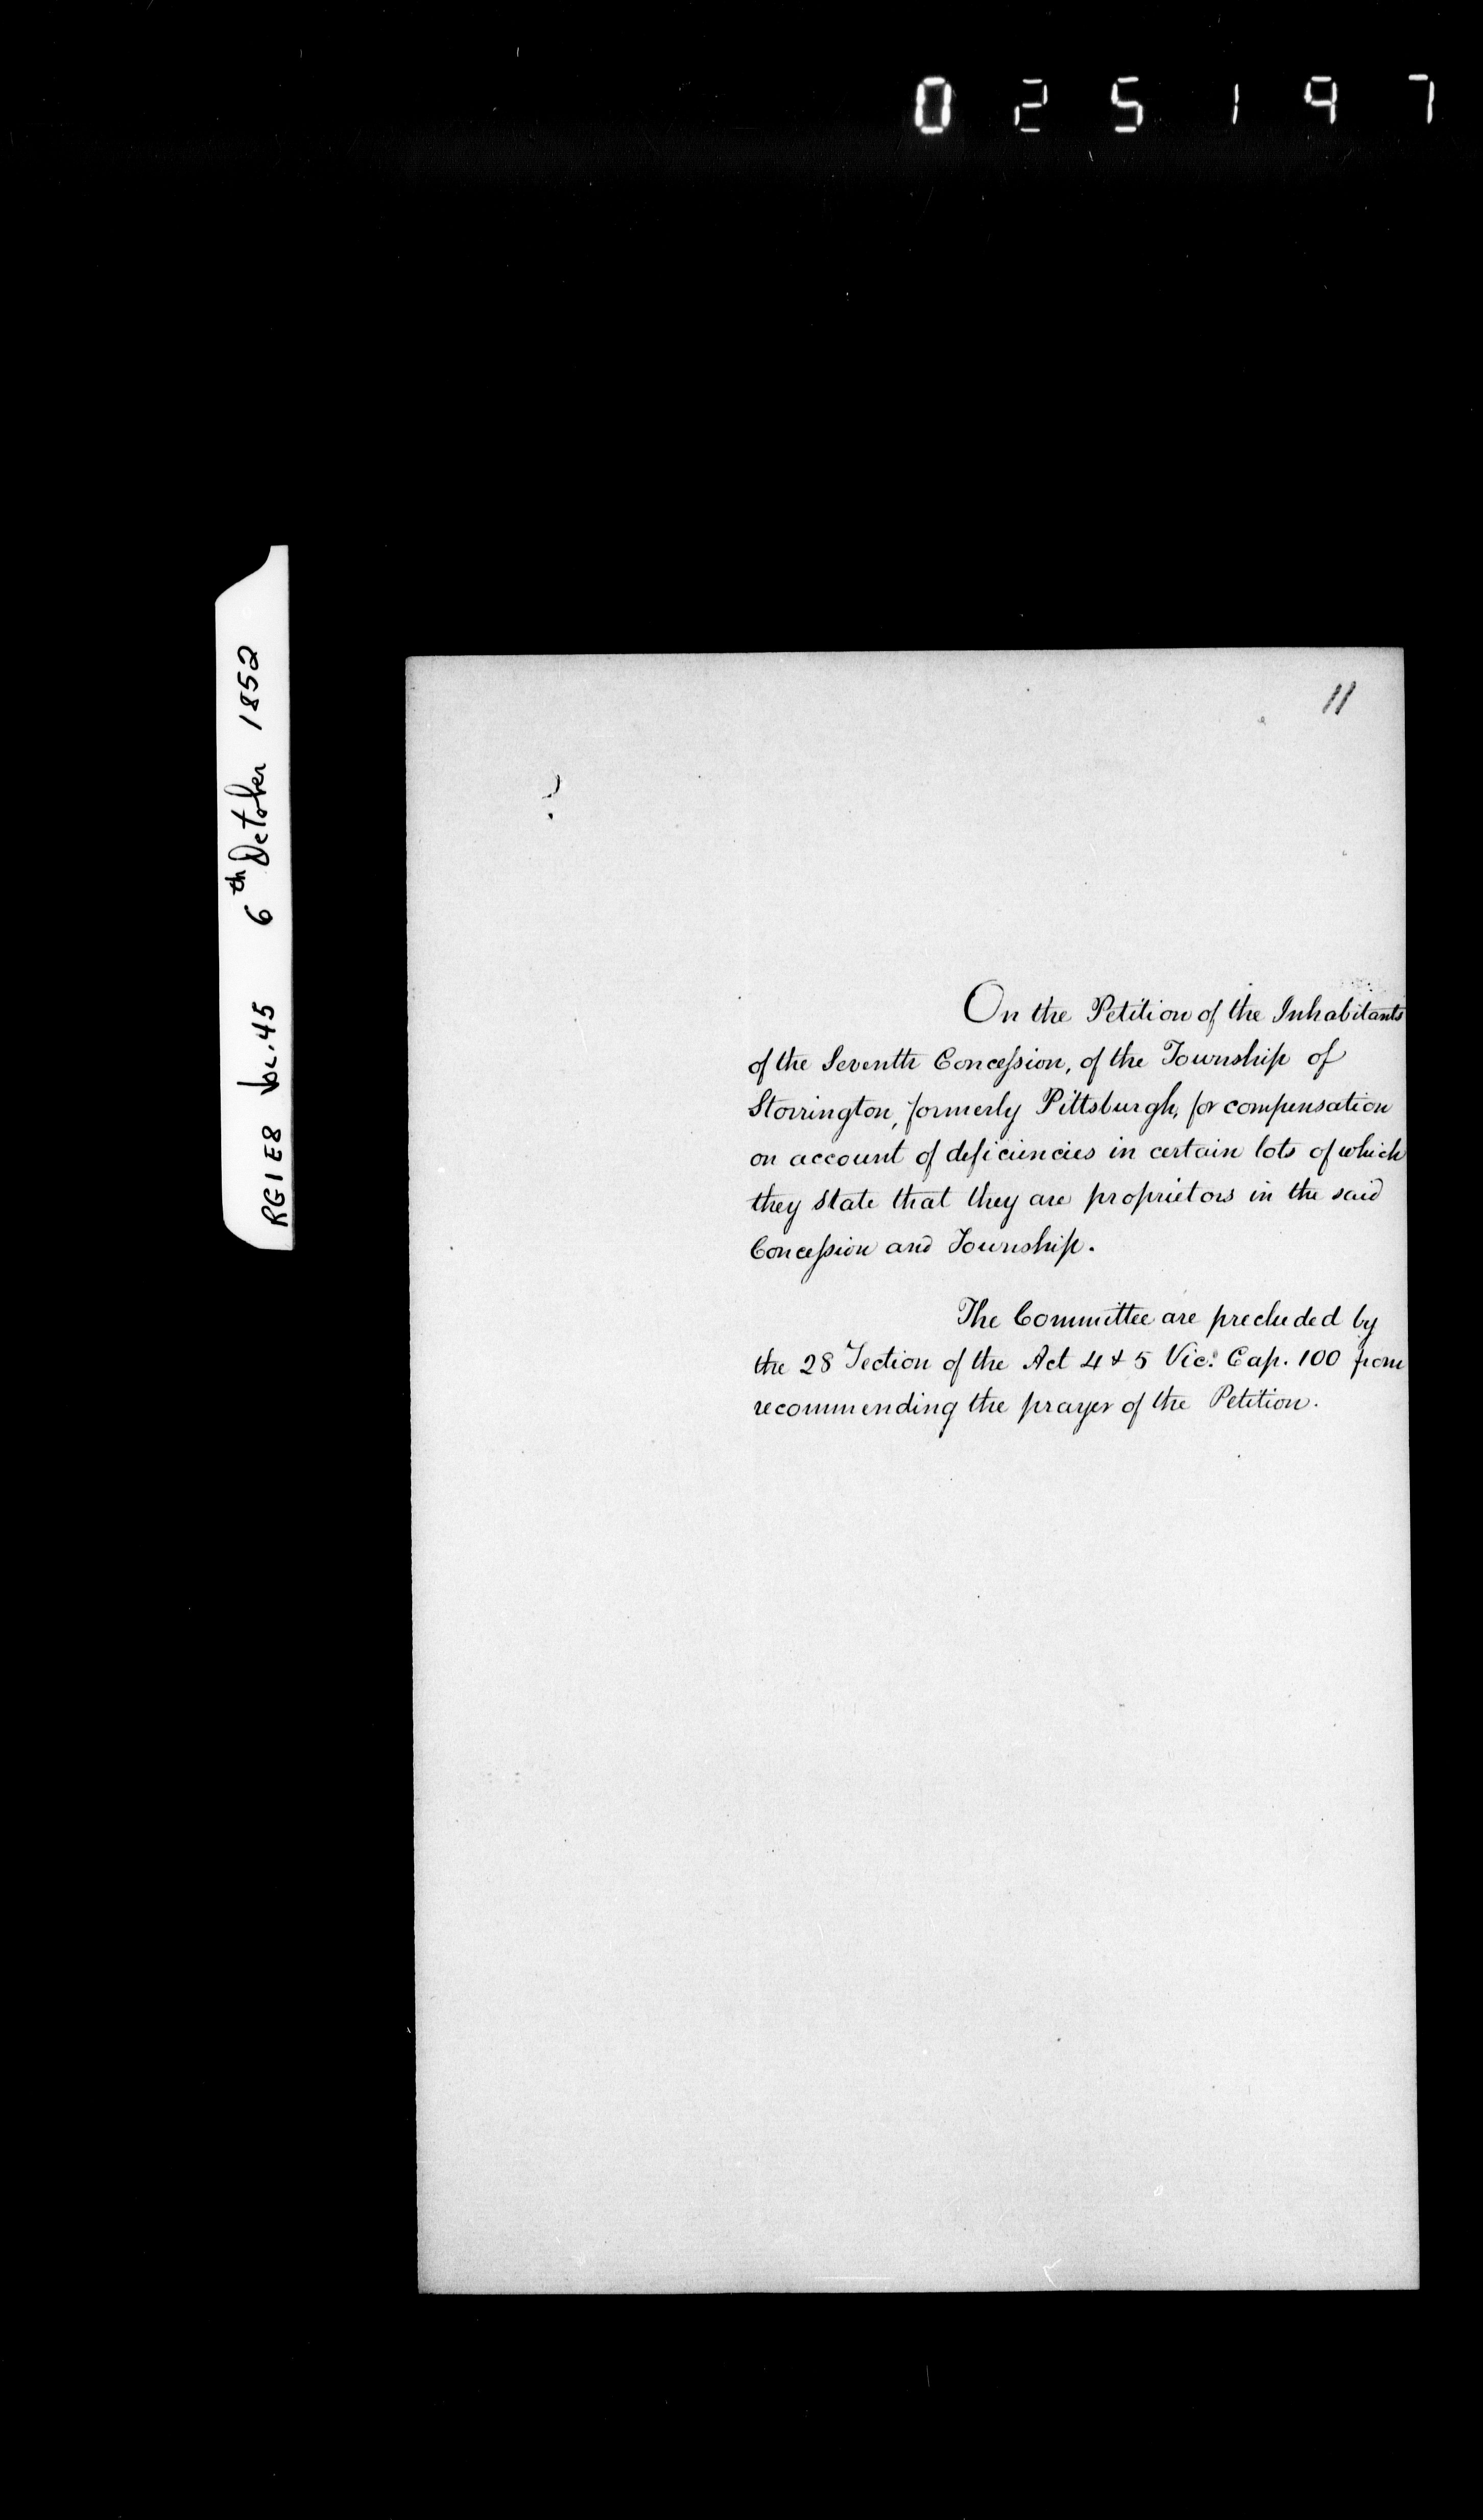 025197
RG1 E8 Vol. 45 6th October 1852
11
?
On the Petition of the Inhabitants
of the Seventh Concession, of the Township of
Storrington, formerly Pittsburgh, for compensation
on account of deficiencies in certain lots of which
they state that they are proprietors in the said
Concession and Township.
The Committee are precluded by
the 28 Section of the Act 4 & 5 Vic: Cap. 100 from
recommending the prayer of the Petition.